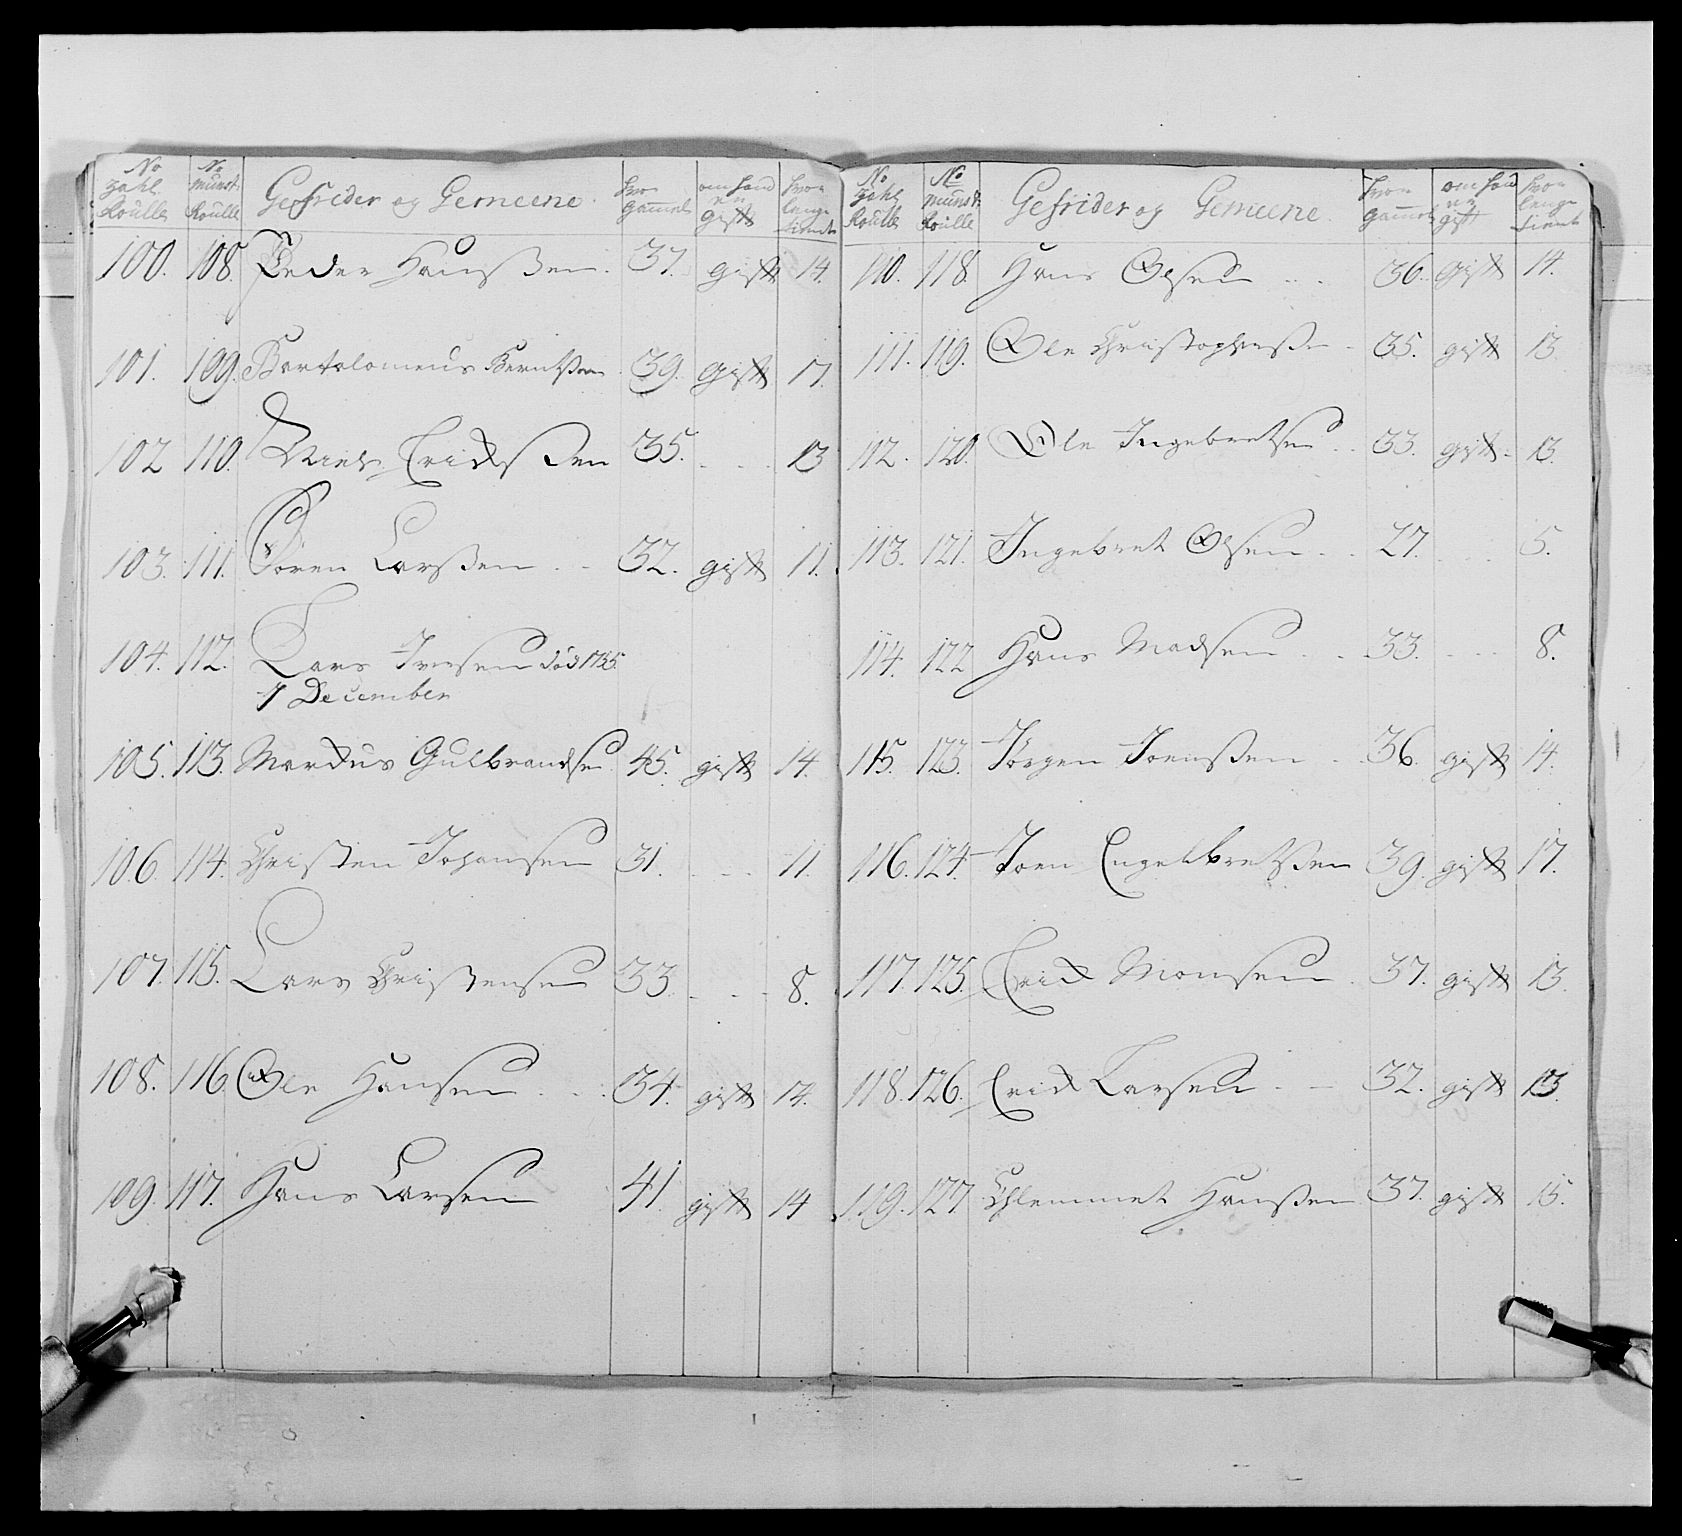 No Zahl Roulle | No Munst: Roulle | Gefrider og Gemeene. | hvor gammel | om hand er gift | hvor lenge tient
100. 108. Peder Hansßen. 37. gift 14.
101. 109. Bartolomeus Berntßen 39. gift 17.
102 110. Niels Ericksen 35. - - - 13
103. 111. Søren Larsßen - - 32. gift 11.
104. 112. Lars Iversen død 1755.
7 December
105. 113. Marckus Gulbrandsen 45. gift 14.
106. 114. Christen Johansen 31. - - - 11.
107. 115. Lars Christensen 33 - - - 8.
108. 116 Ole Hansen - - - 34. gift 14.
109. 117. Hans Larsen 41. gift 14
No Zahl Roulle | No Munst: Roulle | Gefrider og Gemeene. | hvor gammel | om hand er gift | hvor lenge tient
110. 118. Hans Olsen - - 36. gift 14.
111. 119. Ole Christophersen - 35. gift 13.
112. 120. Ole Ingebretsen - - 33. gift - 13.
113. 121. Ingebret Olsen - - 27. - - 5.
114. 122 Hans Madsen - - 33. - - - 8.
115. 123. Jørgen Joensßen - 36. gift 14.
116. 124. Joen Engelbretsßen 39. gift 17.
117. 125. Erick Monsen - 37. gift 13.
118. 126. Erick Larsen - - 32. gift 13.
119. 127 Chlemmet Hansßen 37. gift 15.